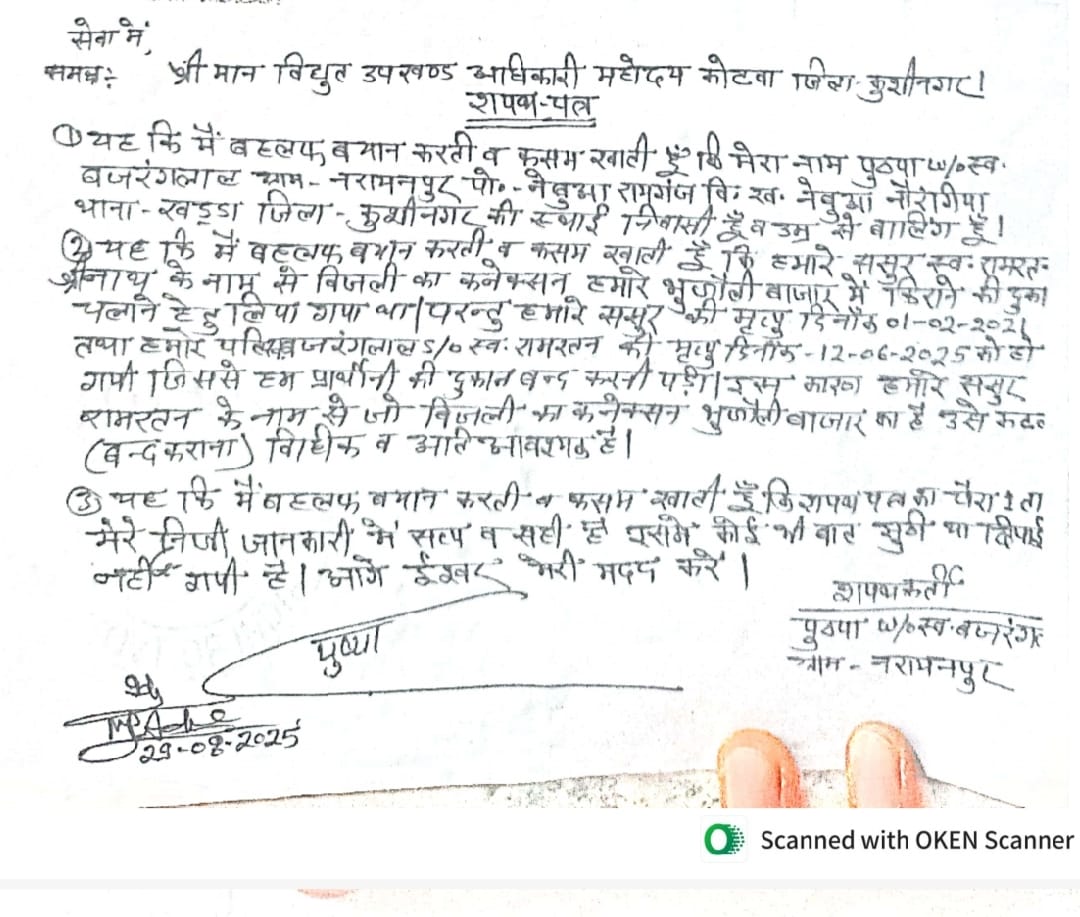 सेवा में,
समक्ष: श्री मान विद्युत उपखण्ड अधिकारी महोदय कोटवा जिला-कुशीनगर।
शपथ-पत्र
① यह कि मैं बहलफ बयान करती व कसम खाती हूँ कि मेरा नाम पुष्पा w/o स्व.
बजरंगलाल ग्राम-नरायनपुर पो.-नेबुआ रायगंज वि. ख. नेबुआ नौरंगिया
थाना-खड्डा जिला-कुशीनगर की स्थाई निवासी हूँ व उम्र से बालिग हूँ।
② यह कि मैं बहलफ बयान करती व कसम खाती हूँ कि हमारे ससुर स्व. रामरत-
श्रीनाथ के नाम से बिजली का कनेक्सन हमारे भुजौली बाजार में किराने की दुका
चलाने हेतु लिया गया था। परन्तु हमारे ससुर की मृत्यु दिनाँक 01-02-2021
तथा हमारे पति स्व बजरंगलाल S/o स्व: रामरतन की मृत्यु दिनाँक-12-06-2025 को हो
गयी जिससे हम प्रार्थीनी की दुकान बन्द करनी पड़ी। इस कारण हमारे ससुर
रामरतन के नाम से जो बिजली का कनेक्सन भुजौली बाजार का है उसे
(बन्द कराना) विधिक व अति आवश्यक है।
③ यह कि मैं बहलफ बयान करती व कसम खाती हूँ कि शपथ पत्र का पैरा 1 ता
मेरे निजी जानकारी में सत्य व सही है इसमें कोई भी बात झुठी या छिपाई
नहीं गयी है। आगे ईश्वर मेरी मदद करें।
शपथकर्ती
पुष्पा w/o स्व. बजरंग
ग्राम-नरायनपुर
पुष्पा
29-08-2025
Scanned with OKEN Scanner